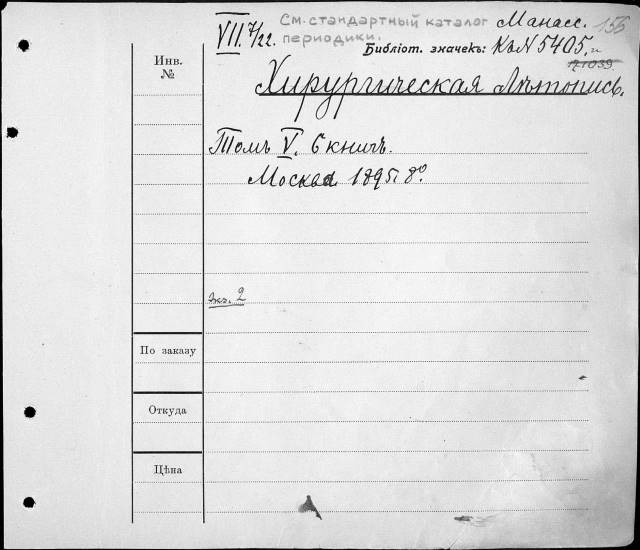 См. стандартный каталог периодики.
Манасс. 155
VII. 7/22.
Библіот. значекъ: К. № 5405.
71039
Инв. №
Хирургическая Лѣтопись.
Томъ V. 6 книгъ.
Москва 1895. 8°.
экз. 2
По заказу
Откуда
Цѣна